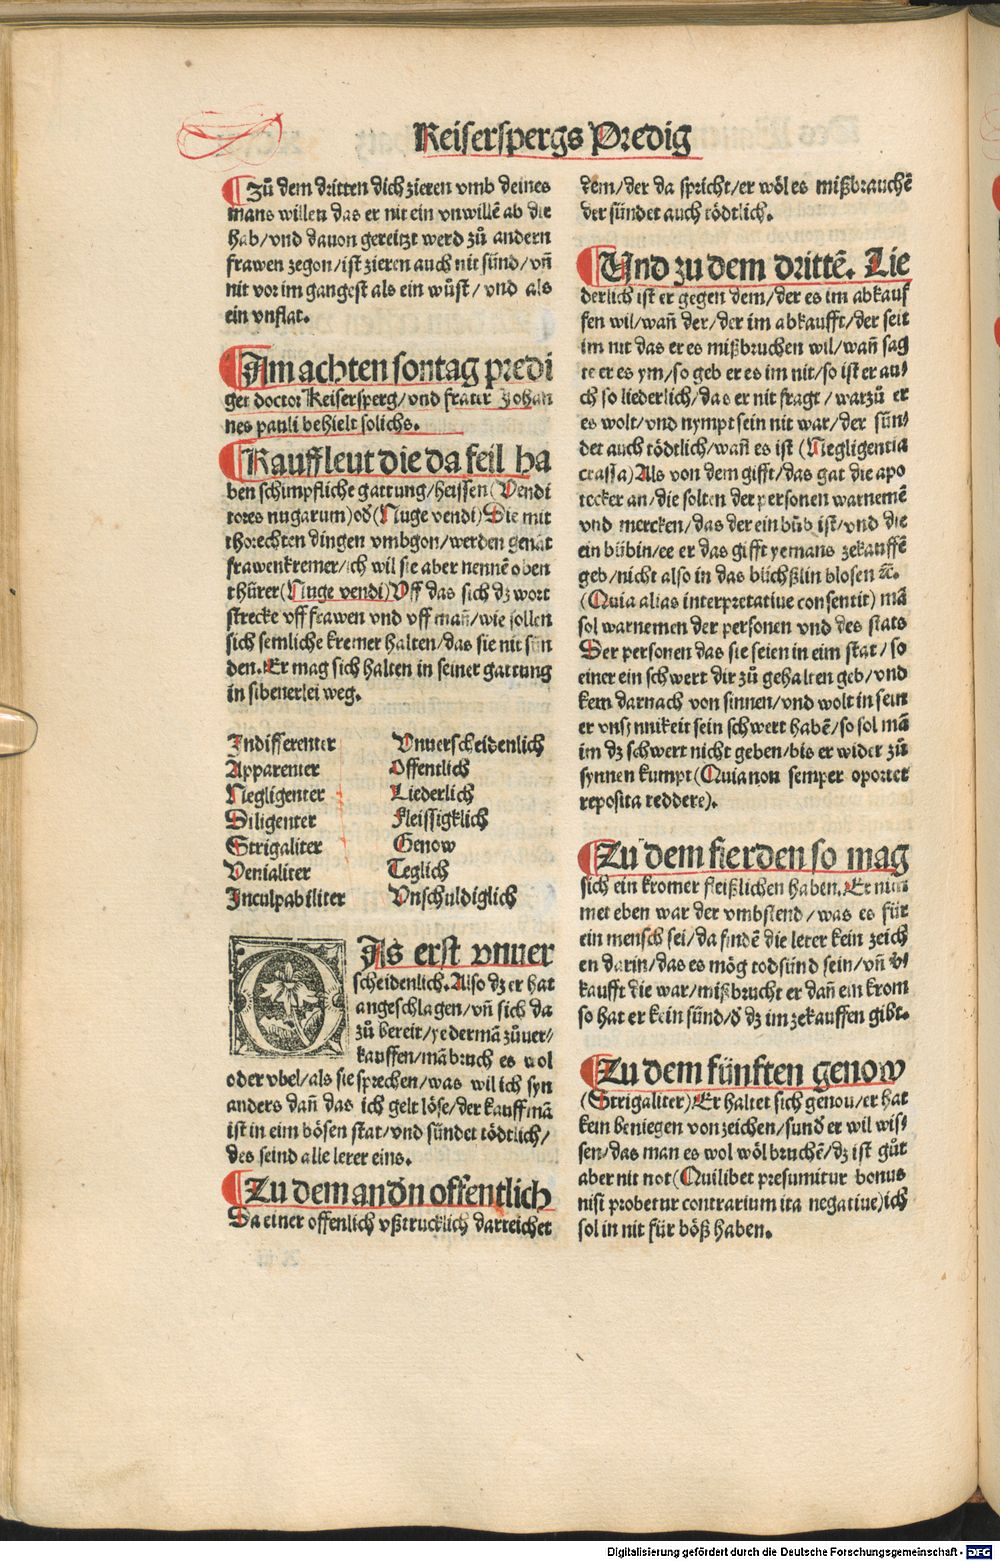 Keiserspergs Predig
¶Zů dem dritten dich zieren vmb deines
mans willen das er nit ein vnwillē ab dir
hab/vnd dauon gereitzt werd zů andern
frawen zegon/ist zieren auch nit sünd/vñ
nit vor im gangest als ein wůst/vnd als
ein vnflat.
¶Am achten sontag predi
get doctor Keisersperg/vnd frater Johan
nes pauli behielt solichs.
¶Kauffleut die da feil ha
ben schimpfliche gattung/heissen(Vendi
tores nugarum)od̛(Nuge vendi)Die mit
thorechten dingen vmbgon/werden genāt
frawenkremer/ich wil sie aber nennē oben
thürer(Nuge vendi)Vff das sich dz wort
strecke vff frawen vnd vff mañ/wie sollen
sich semliche kremer halten/das sie nit sün
den.Er mag sich halten in seiner gattung
in sibenerlei weg.
Indifferenter Vnuerscheidenlich
Apparenter Offentlich
Negligenter Liederlich
Diligenter Fleissigklich
Strigaliter Genow
Venialiter Teglich
Inculpabiliter Vnschuldiglich
DAs erst vnuer
scheidenlich.Also dz er hat
angeschlagen/vñ sich da
zů bereit/yedermā zůuer/
kauffen/mā bruch es wol
oder vbel/als sie sprechen/was wil ich syn
anders dañ das ich gelt löse/der kauffmā
ist in eim bösen stat/vnd sündet tödtlich/
des seind alle lerer eins.
¶Zu dem andn̄ offentlich
Da einer offenlich vßtrucklich darreichet
dem/der da spricht/er wöl es mißbrauchē
der sündet auch tödtlich.
¶Und zu dem drittē. Lie
derlich ist er gegen dem/der es im abkauf
fen wil/wañ der/der im abkaufft/der seit
im nit das er es mißbruchen wil/wañ sag
te er es ym/so geb er es im nit/so ist er au/
ch so liederlich/das er nit fragt/warzů er
es wolt/vnd nympt sein nit war/der sün/
det auch tödtlich/wañ es ist (Negligentia
crassa)Als von dem gifft/das gat die apo
tecker an/die solten der personen warnemē
vnd mercken/das der ein bůb ist/vnd die
ein bübin/ee er das gifft yemans zekauffē
geb/nicht also in das büchßlin blosen ⁊c̄.
(Quia alias interpretatiue consentit) mā
sol warnemen der personen vnd des stats
Der personen das sie seien in eim stat/so
einer ein schwert dir zů gehalten geb/vnd
kem darnach von sinnen/vnd wolt in sein
er vnsinnikeit sein schwert habē/so sol mā
im dz schwert nicht geben/bis er wider zů
synnen kumpt(Quia non semper oportet
reposita reddere).
¶Zů dem fierden so mag
sich ein kromer fleißlichen haben.Er nim
met eben war der vmbstend/was es für
ein mensch sei/da findē die lerer kein zeich
en darin/das es mög todsünd sein/vñ v̛
kaufft die war/mißbrucht er dañ ein krom
so hat er kein sünd/d̛ dz im zekauffen gibt.
¶Zu dem fünften genow
(Strigaliter)Er haltet sich genow/er hat
kein beniegen von zeichen/sund̛ er wil wis/
sen/das man es wol wöl bruchē/dz ist gůt
aber nit not(Quilibet presumitur bonus
nisi probetur contrarium ita negatiue)ich
sol in nit für böß haben.
Digitalisierung gefördert durch die Deutsche Forschungsgemeinschaft - DFG